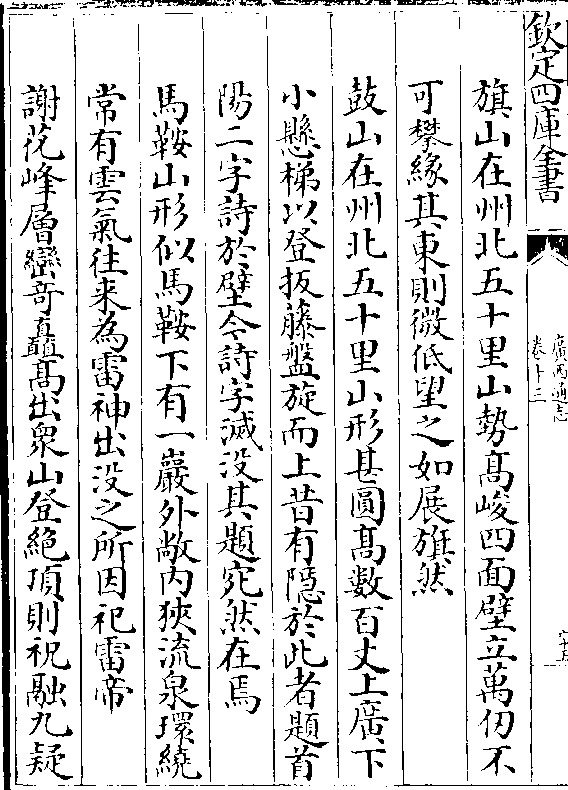 欽定四庫全書
廣西通志
卷十三
旗山在州北五十里山勢髙峻四面壁立萬仞不
可攀緣其東則微低望之如展旗然
鼓山在州北五十里山形甚圓髙數百丈上廣下
小懸梯以登扳藤盤旋而上昔有隱於此者題首
陽二字詩於壁今詩字滅没其題宛然在焉
馬鞍山形似馬鞍下有一巖外敞内狹流泉環繞
常有雲氣往来為雷神出没之所因祀雷帝
謝花峰層巒竒矗髙出衆山登絶頂則祝融九疑